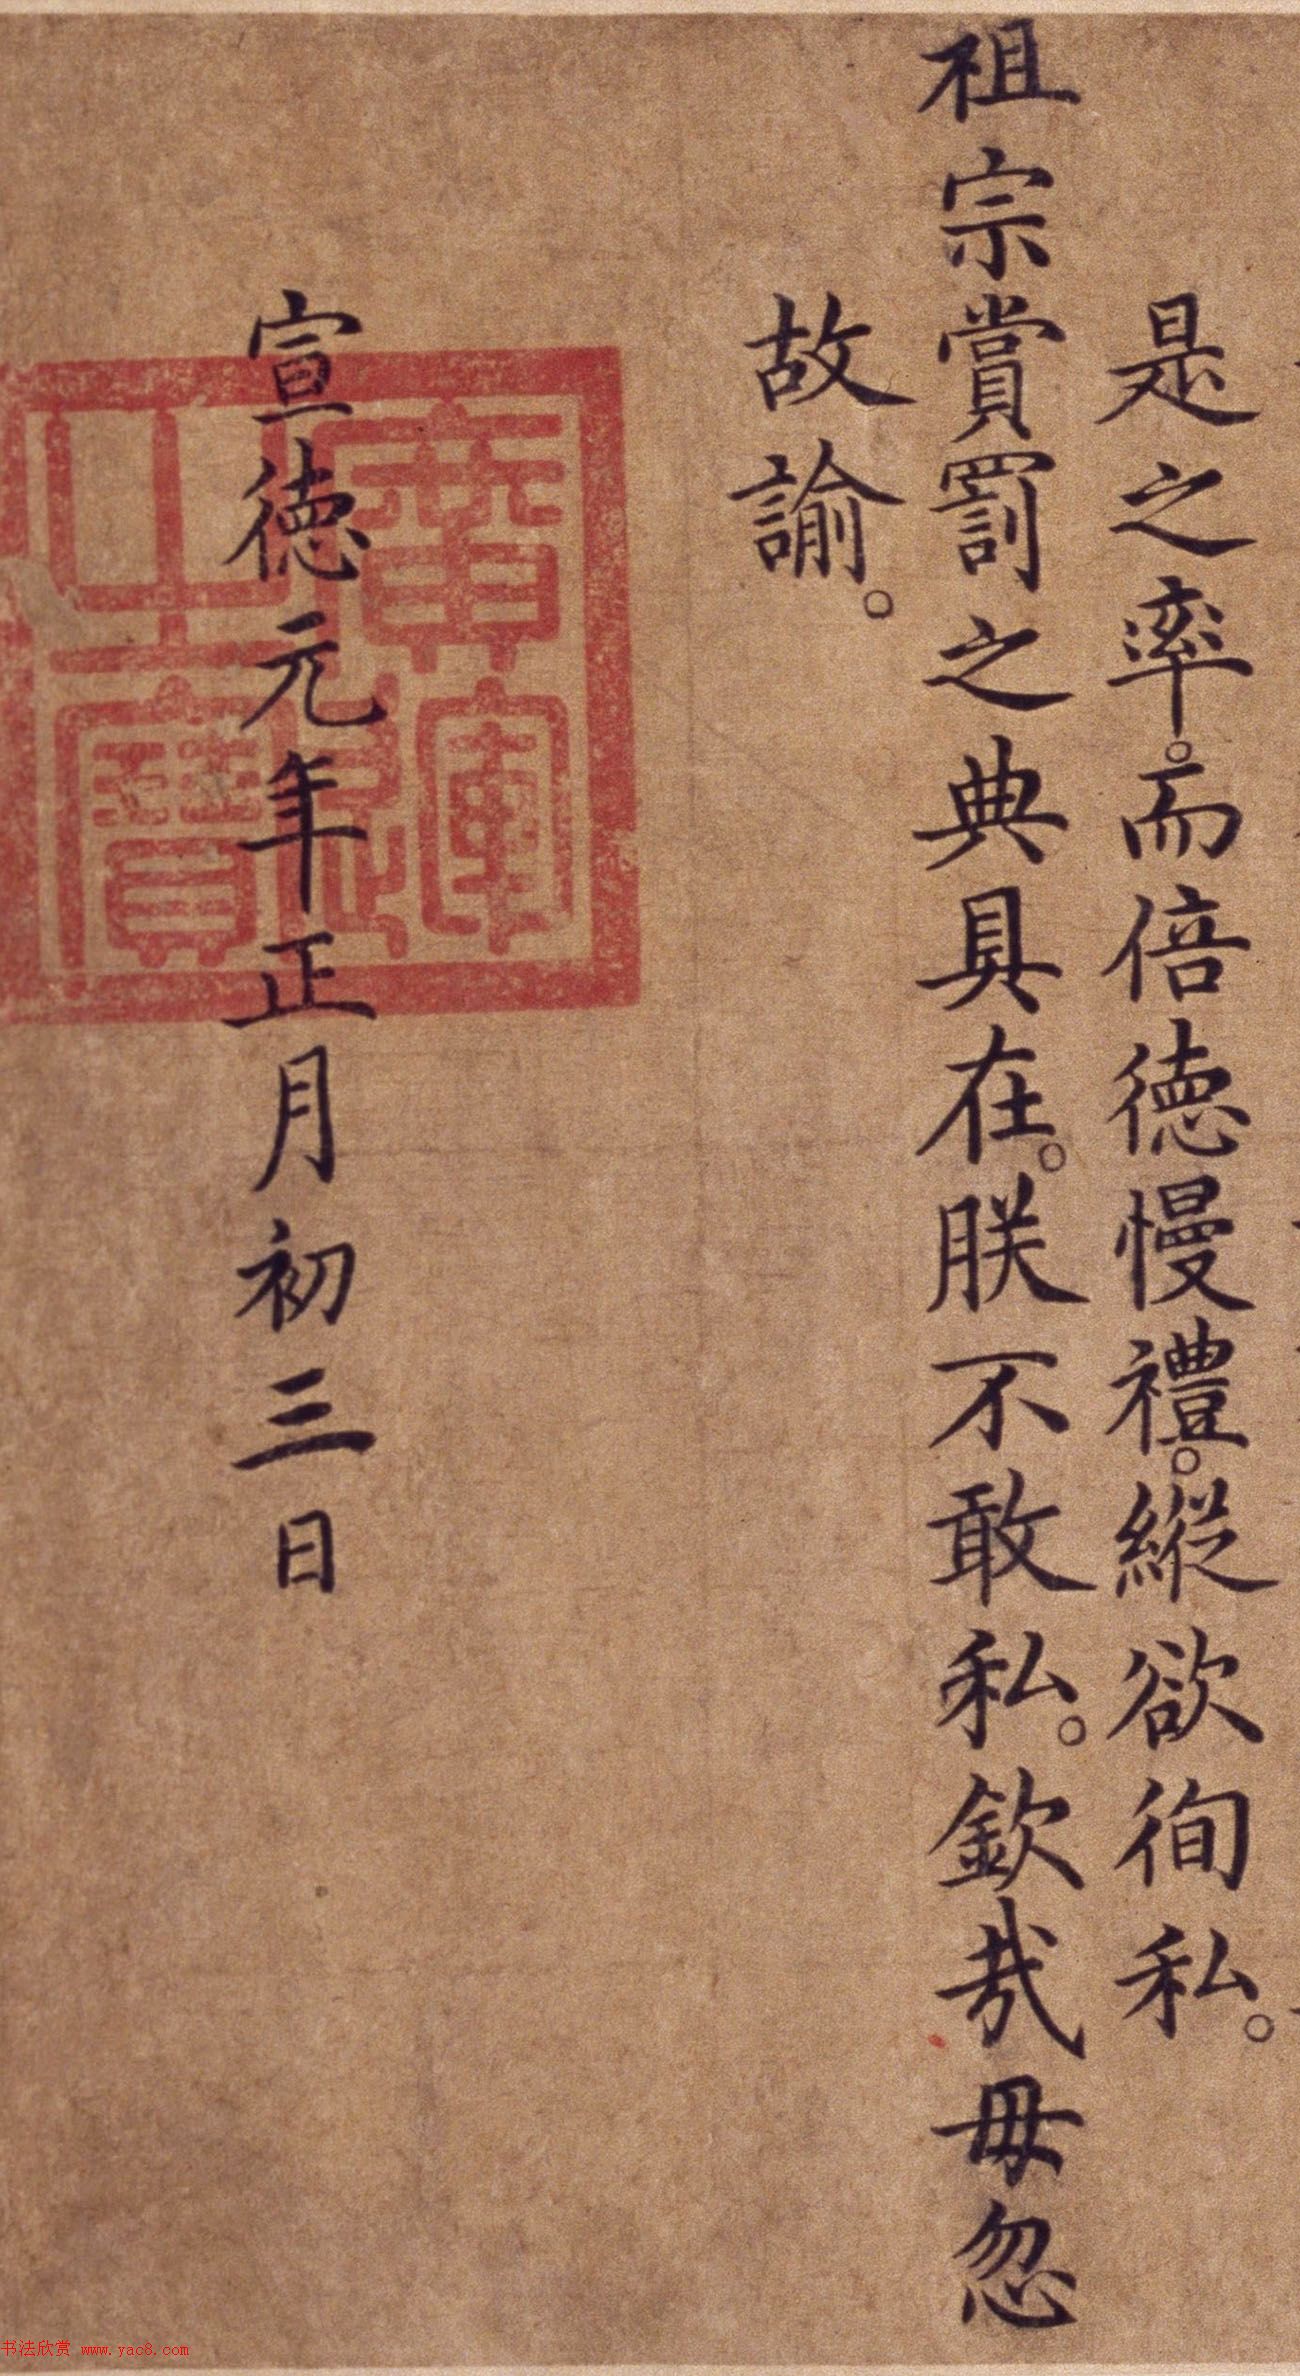 是之率。而倍徳慢禮。縱欲徇私。
祖宗賞罰之典具在。朕不敢私。欽哉毋忽
故諭。
宣徳元年正月初三日
廣運之寶
书法欣赏 www.yac8.com